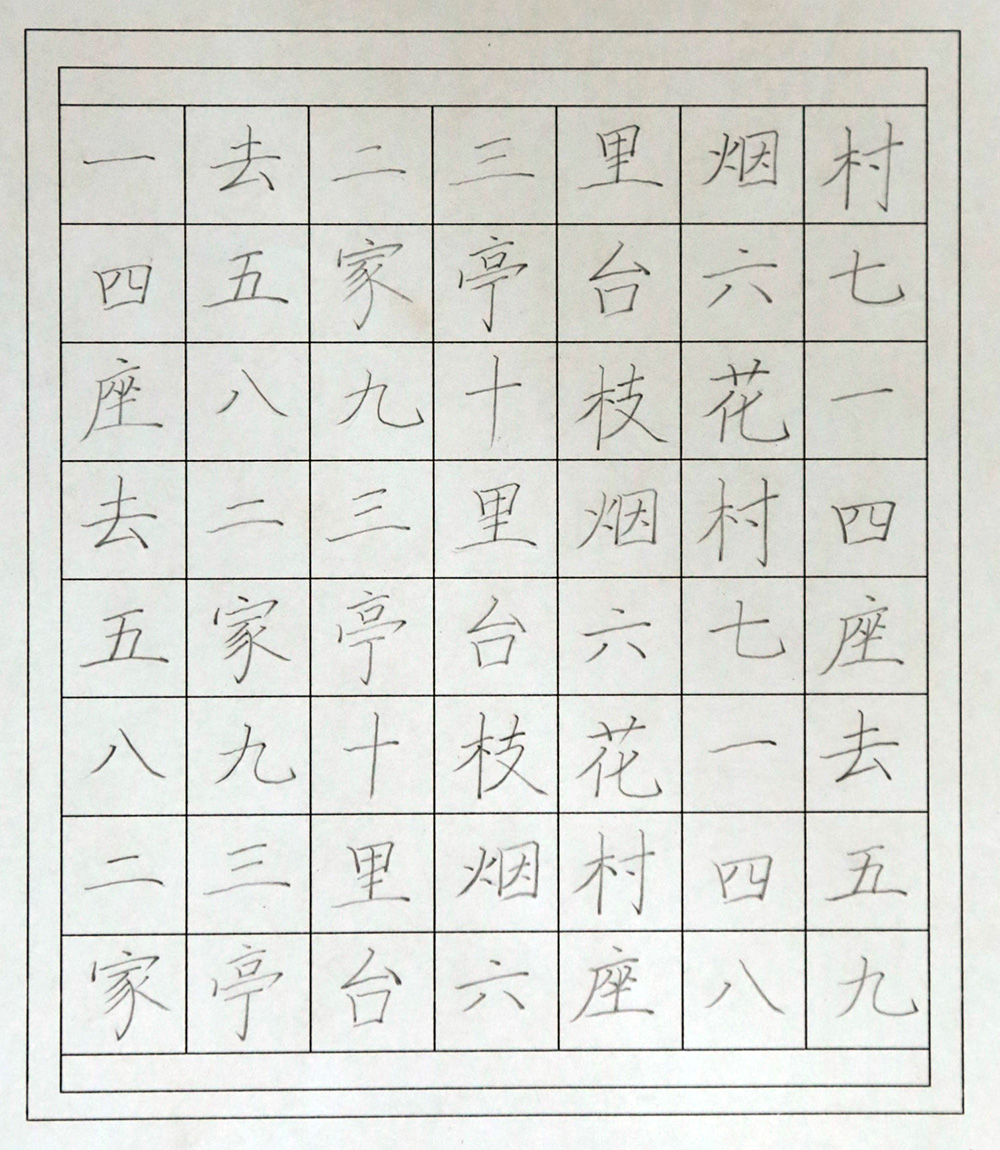 一去二三里烟村
四五家亭台六七
座八九十枝花一
去二三里烟村四
五家亭台六七座
八九十枝花一去
二三里烟村四五
家亭台六座八九